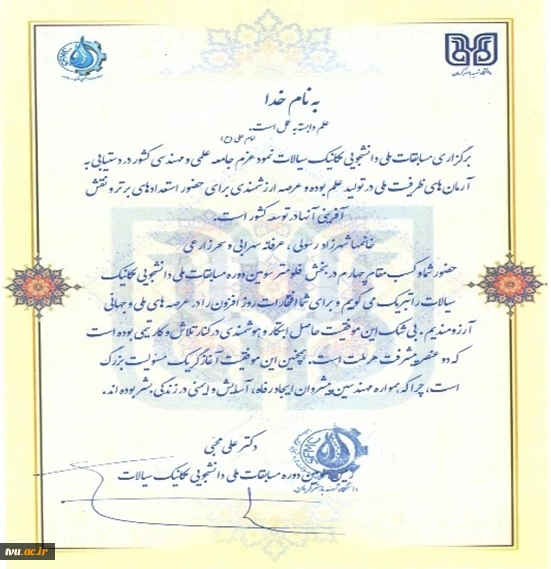 دانشگاه شهید باهنر کرمان
به نام خدا
علم وابسته به عمل است.
امام علی (ع)
برگزاری مسابقات ملی دانشجویی مکانیک سیالات نمود عزم جامعه علمی و مهندسی کشور در دستیابی به
آرمان های ظرفیت ملی در تولید علم بوده و عرصه ارزشمندی برای حضور استعدادهای برتر و نقش
آفرینی آنها در توسعه کشور است.
خانمها شهرزاد رسولی ، عرفانه سهرابی و سحر زارعی
حضور شما و کسب مقام چهارم در بخش فلومتر سومین دوره مسابقات ملی دانشجویی مکانیک
سیالات را تبریک می گویم و برای شما افتخارات روز افزون را در عرصه های ملی و جهانی
آرزومندیم. بی شک این موفقیت حاصل ابتکار و هوشمندی در کنار تلاش و کار تیمی بوده است
که دو عنصر پیشرفت هر ملت است. همچنین این موفقیت آغازگر یک مسئولیت بزرگ
است، چرا که همواره مهندسین پیشروان ایجاد رفاه، آسایش و ایمنی در زندگی بشر بوده اند.
دکتر علی محبی
SFMC
دوره مسابقات ملی دانشجویی مکانیک سیالات
دانشگاه شهید باهنر کرمان
tvu.ac.ir